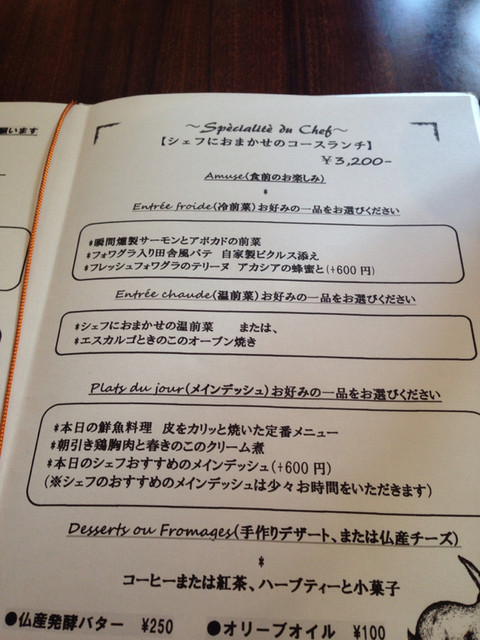 願います
～Spècialitè du Chef～
【シェフにおまかせのコースランチ】
￥3,200-
Amuse(食前のお楽しみ)
*
Entrée froide(冷前菜)お好みの一品をお選びください
*瞬間燻製サーモンとアボカドの前菜
*フォワグラ入り田舎風パテ 自家製ピクルス添え
*フレッシュフォワグラのテリーヌ アカシアの蜂蜜と(+600円)
Entrée chaude(温前菜)お好みの一品をお選びください
*シェフにおまかせの温前菜 または、
*エスカルゴときのこのオーブン焼き
Plats du jour(メインデッシュ)お好みの一品をお選びください
*本日の鮮魚料理 皮をカリッと焼いた定番メニュー
*朝引き鶏胸肉と春きのこのクリーム煮
*本日のシェフおすすめのメインデッシュ(+600円)
(※シェフのおすすめのメインデッシュは少々お時間をいただきます)
Desserts ou Fromages(手作りデザート、または仏産チーズ)
*
コーヒーまたは紅茶、ハーブティーと小菓子
●仏産発酵バター ¥250 ●オリーブオイル ¥100